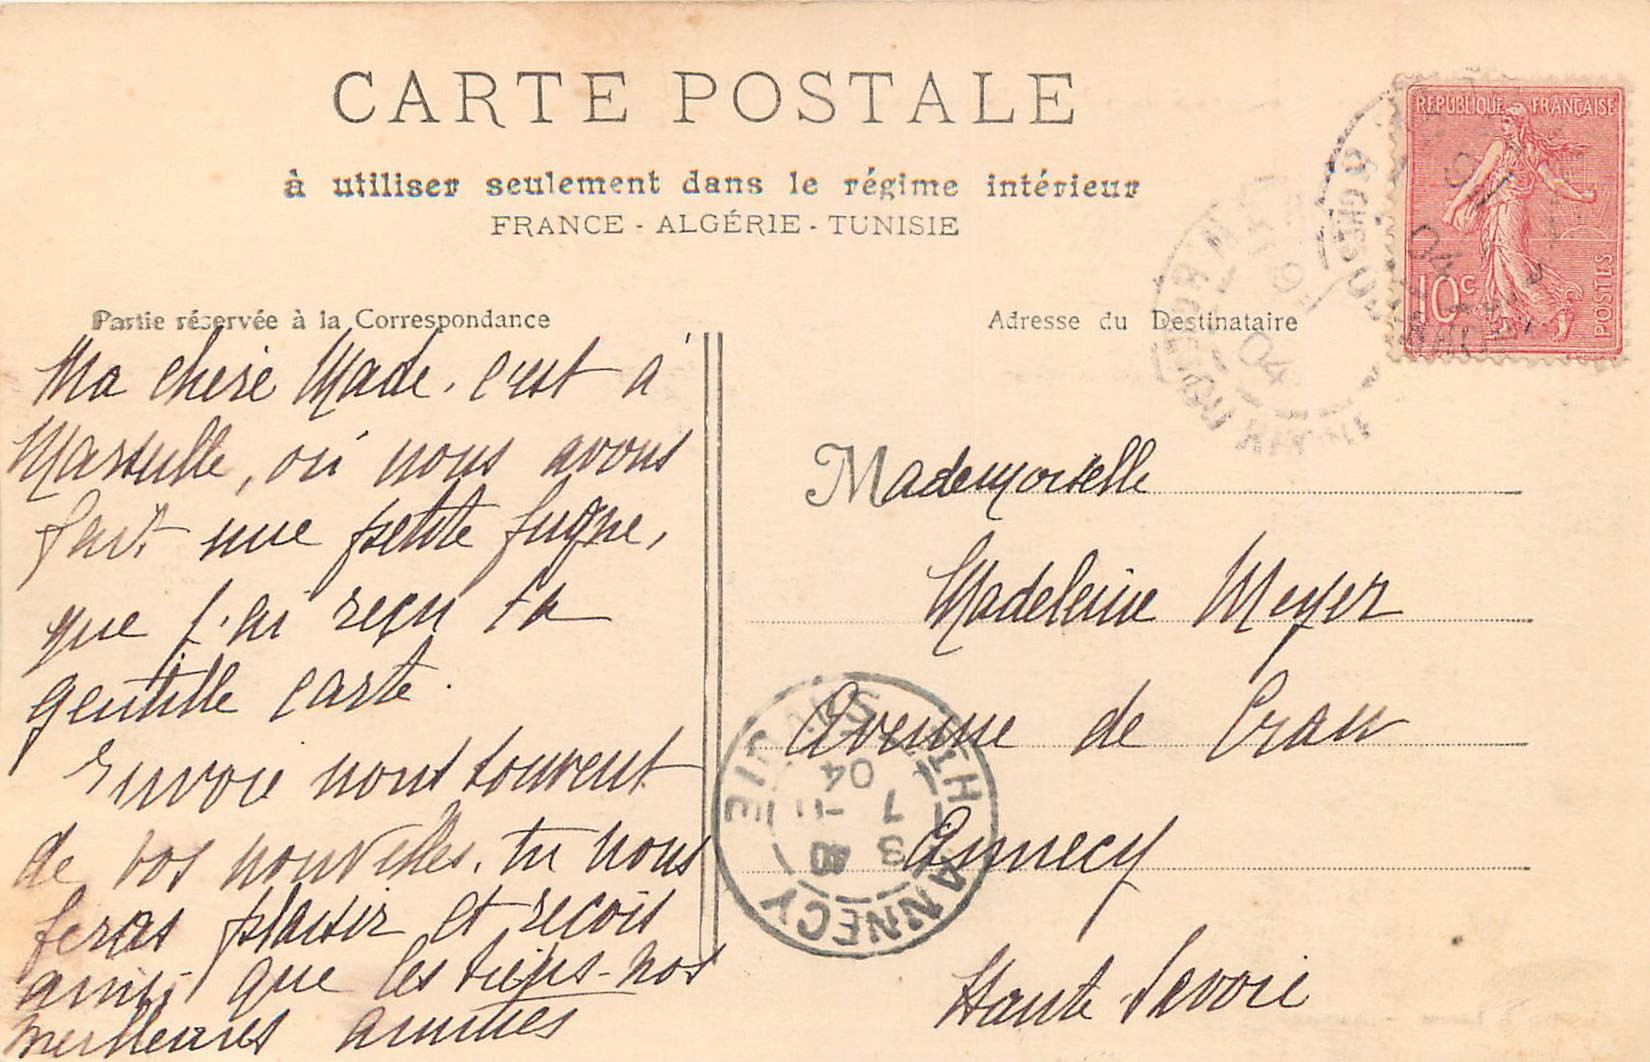 CARTE POSTALE
à utiliser seulement dans le régime intérieur
FRANCE - ALGÉRIE - TUNISIE
RÉPUBLIQUE FRANÇAISE
10c
POSTES
04
04
Partie réservée à la Correspondance
Ma chère Made. c'est à
Marseille, où nous avons
fait une petite fugue,
que j'ai reçu ta
gentille carte.
Envoie nous souvent
de vos nouvelles. tu nous
feras plaisir et reçois
ainsi que les tiens nos
meilleures amitiés
Adresse du Destinataire
Mademoiselle
Madeleine Meyer
Avenue de Cran
Annecy
Haute Savoie
ANNECY
HTE SAVOIE
8
7 -11
04